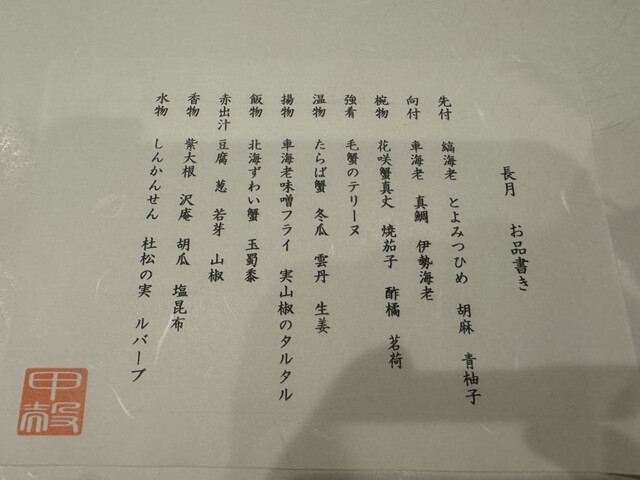 長月 お品書き
先付 縞海老 とよみつひめ 胡麻 青柚子
向付 車海老 真鯛 伊勢海老
椀物 花咲蟹真丈 焼茄子 酢橘 茗荷
強肴 毛蟹のテリーヌ
温物 たらば蟹 冬瓜 雲丹 生姜
揚物 車海老味噌フライ 実山椒のタルタル
飯物 北海ずわい蟹 玉蜀黍
赤出汁 豆腐 葱 若芽 山椒
香物 紫大根 沢庵 胡瓜 塩昆布
水物 しんかんせん 杜松の実 ルバーブ
甲殻